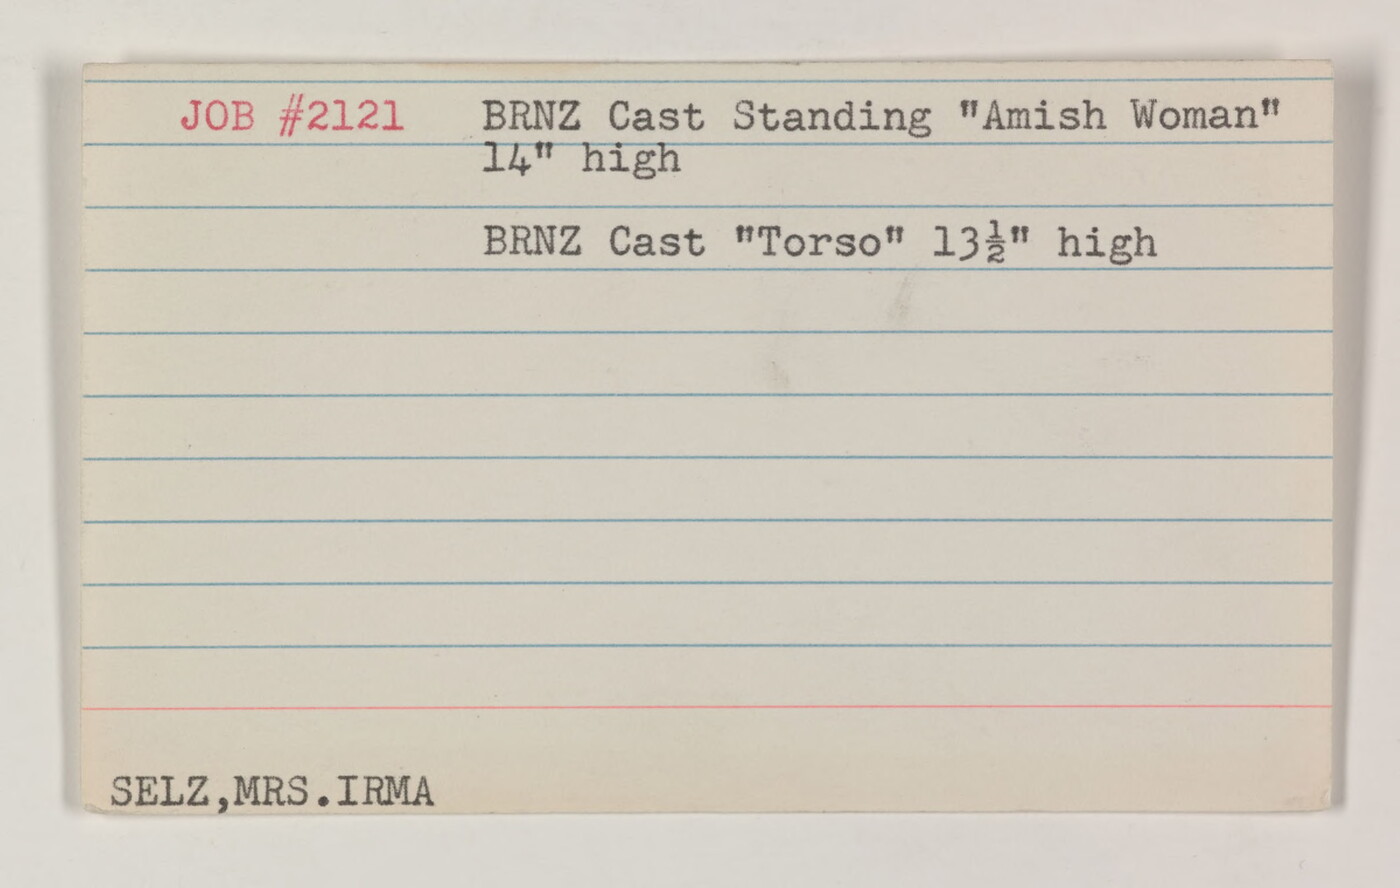 JOB #2121 BRNZ Cast Standing "Amish Woman"
14" high
BRNZ Cast "Torso" 13½" high
SELZ,MRS.IRMA